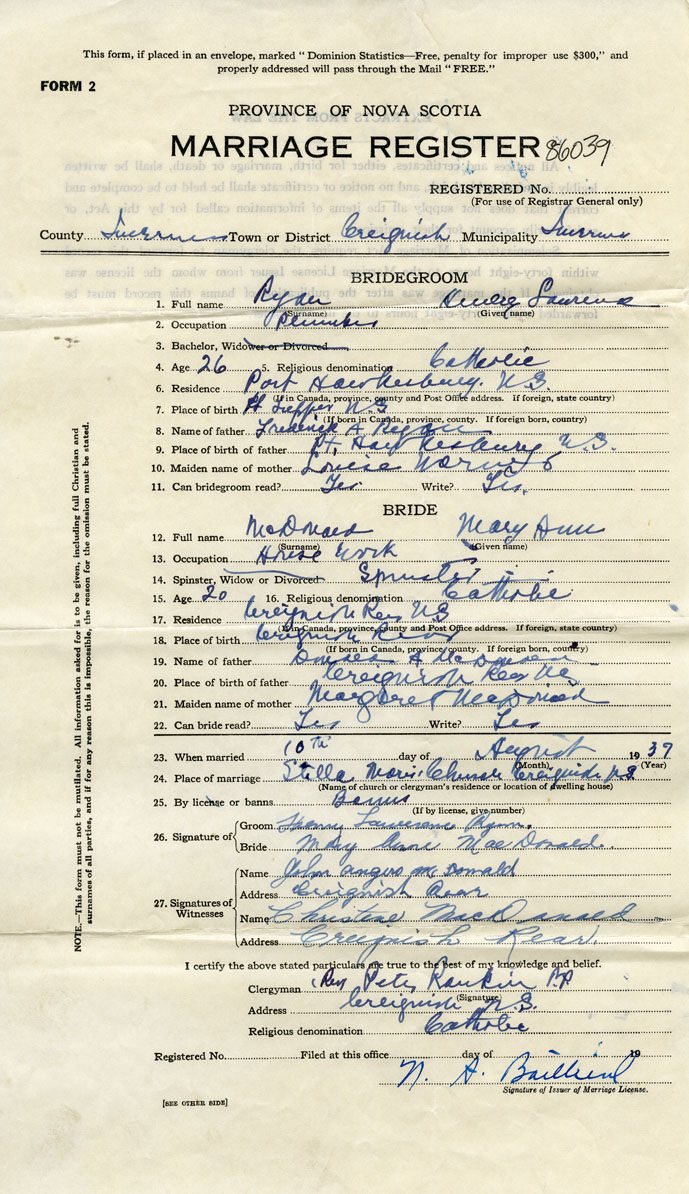 This form, if placed in an envelope, marked "Dominion Statistics—Free, penalty for improper use $300," and
properly addressed will pass through the Mail "FREE."
FORM 2
PROVINCE OF NOVA SCOTIA
MARRIAGE REGISTER 86039
REGISTERED No.
(For use of Registrar General only)
County Inverness Town or District Creignish Municipality Inverness
BRIDEGROOM
1. Full name Ryan Laurence
(Surname) (Given name)
2. Occupation Plumber
3. Bachelor, Widower or Divorced
4. Age 26 5. Religious denomination Catholic
6. Residence Port Hawkesbury. N.S.
(If in Canada, province, county and Post Office address. If foreign, state country)
7. Place of birth N S
(If born in Canada, province, county. If foreign born, country)
8. Name of father Frederick A Ryan
9. Place of birth of father Pt. Hawkesbury N.S.
10. Maiden name of mother Louise
11. Can bridegroom read? Yes Write? Yes.
BRIDE
12. Full name McDonald Mary Ann
(Surname) (Given name)
13. Occupation House Work
14. Spinster, Widow or Divorced Spinster
15. Age 20 16. Religious denomination Catholic
17. Residence Creignish Rear N S
(If in Canada, province, county and Post Office address. If foreign, state country)
18. Place of birth Creignish Rear
(If born in Canada, province, county. If foreign born, country)
19. Name of father A McDonald
20. Place of birth of father Creignish Rear NS
21. Maiden name of mother Margaret MacDonald
22. Can bride read? Yes Write? Yes
23. When married 10th day of August 1937
(Month) (Year)
24. Place of marriage Stella Maris Church Creignish N.S.
(Name of church or clergyman's residence or location of dwelling house)
25. By license or banns Banns
(If by license, give number)
26. Signature of Groom Lawrence Ryan.
Bride Mary Anne MacDonald.
27. Signatures of Witnesses Name John Angus McDonald
Address Creignish Rear
Name Christine MacDonald
Address Creignish Rear.
I certify the above stated particulars are true to the best of my knowledge and belief.
Clergyman (Rev Peter Rankin P.P
(Signature)
Address Creignish N.S.
Religious denomination Catholic
Registered No. Filed at this office day of 19
N. A.
Signature of Issuer of Marriage License.
[SEE OTHER SIDE]
NOTE.—This form must not be mutilated. All information asked for is to be given, including full Christian and
surnames of all parties, and if for any reason this is impossible, the reason for the omission must be stated.